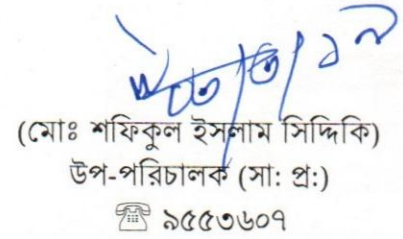 (মোঃ শফিকুল ইসলাম সিদ্দিকি)
উপ-পরিচালক (সা: প্র:)
☏ ৯৫৫৩৬০৭